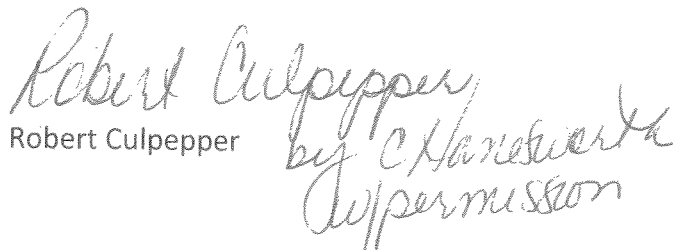 Robert Culpepper
Robert Culpepper
by C Hanesworth
w/permission